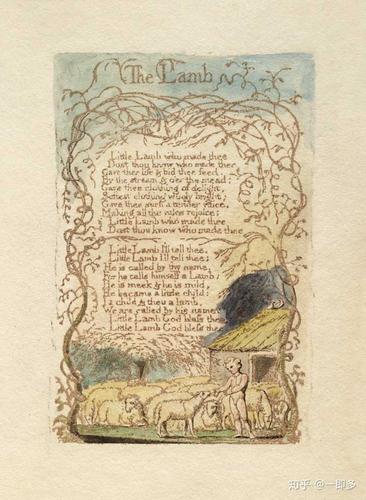 The Lamb
Little Lamb who made thee
Dost thou know who made thee
Gave thee life & bid thee feed.
By the stream & o'er the mead;
Gave thee clothing of delight,
Softest clothing wooly bright;
Gave thee such a tender voice,
Making all the vales rejoice:
Little Lamb who made thee
Dost thou know who made thee
Little Lamb I'll tell thee,
Little Lamb I'll tell thee;
He is called by thy name,
For he calls himself a Lamb:
He is meek & he is mild,
He became a little child:
I a child & thou a lamb,
We are called by his name.
Little Lamb God bless thee
Little Lamb God bless thee
知乎 @一即多